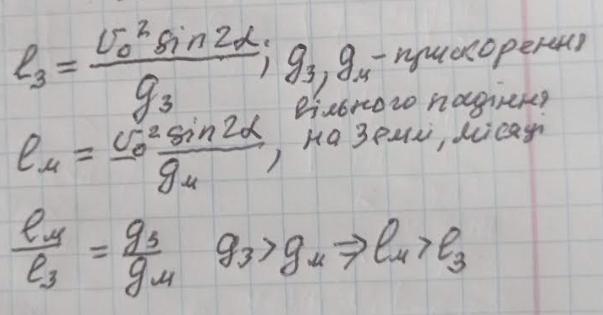 l₃ = υ₀² sin2α / g₃ ; g₃, gм - прискорення
вільного падіння
lм = υ₀² sin2α / gм , на Землі, місяці
lм / l₃ = g₃ / gм   g₃ > gм ⇒ lм > l₃